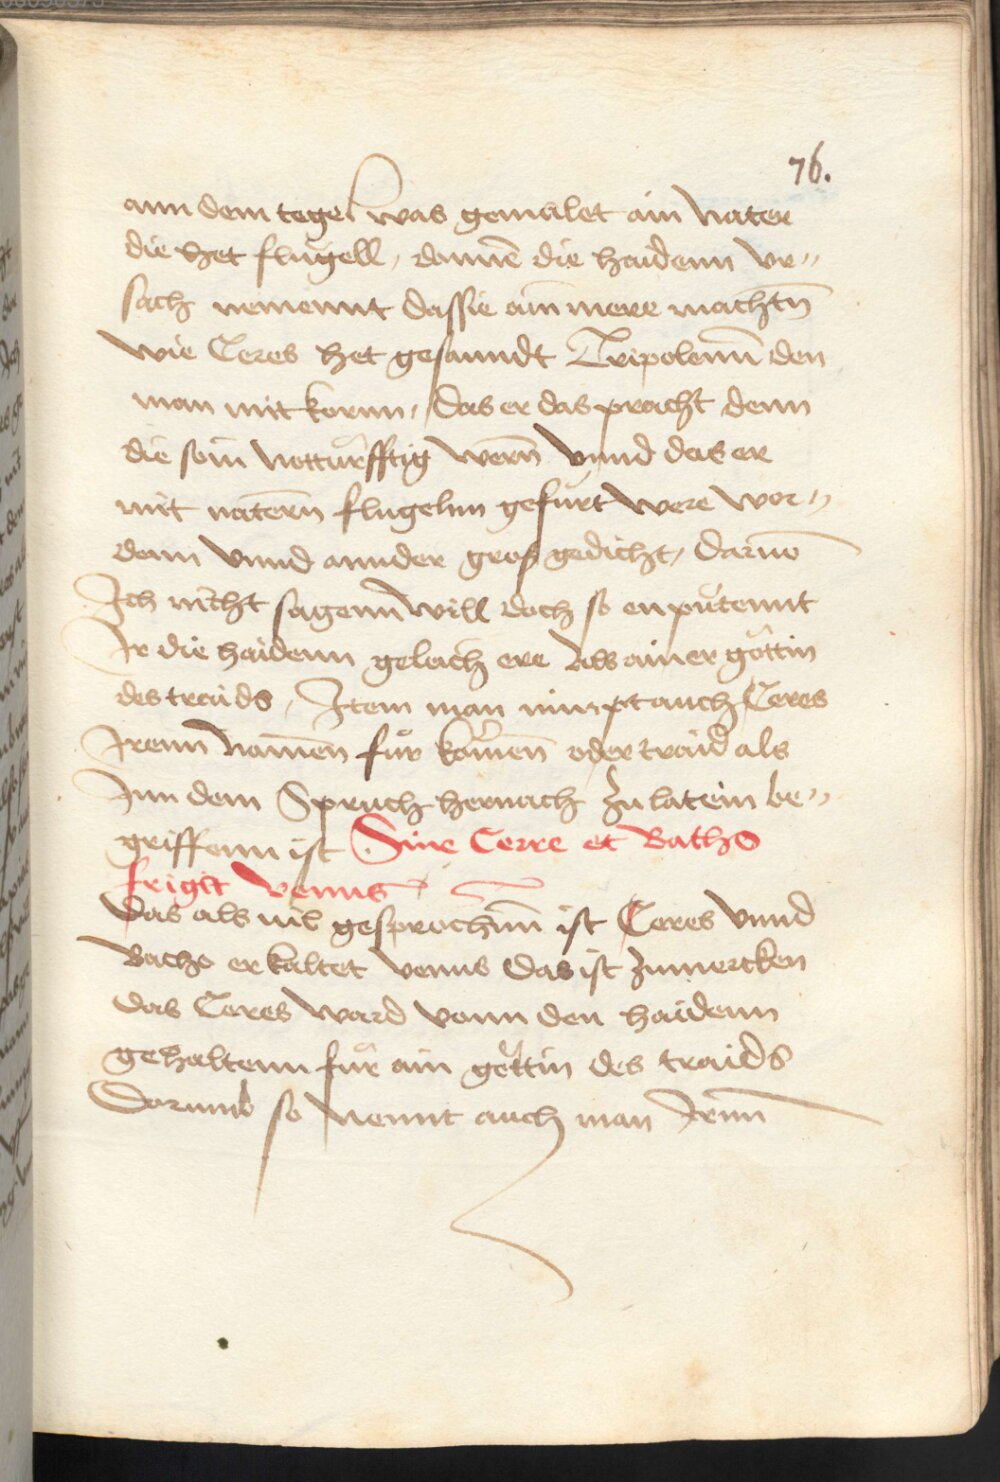 76.
ann dem tegel was gemalet ain nater
die het flugell, dannē die haidenn vr„
sach nemennt dassie ain mere machtn̄
wie Ceres het gesanndt Tripolemū den
man mit kornn, das er das pracht denn
die sein notturfftig wern̄ vnnd das er
mit natern̄ flugelnn gefürt were wor„
denn vnnd annder gros gedicht, daruō
Ich nicht sagenn will doch so enputennt
Ir die haidenn geleich ere als ainer göttin
des traids, Item man nimpt auch Ceres
Irenn namen für korren oder traid als
Inn dem Spruch hernach zu latein be„
griffenn ist. Sine Cerre et Bacho
frigit venus
Das als vil gesprochenn̄ ist Ceres vnnd
Bacho erkaltet venus Das ist zumercken
das Ceres ward vonn den haidenn
gehaltenn für ain göttin des traids
Dorumb so nennt auch man Irnn̄